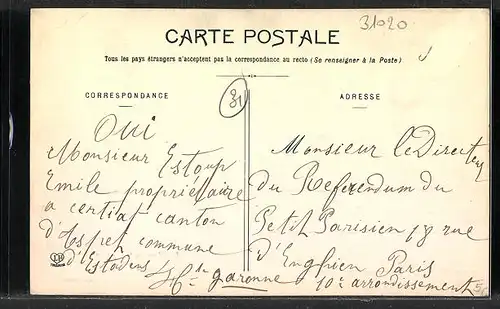 31020
CARTE POSTALE
Tous les pays étrangers n'acceptent pas la correspondance au recto (Se renseigner à la Poste)
CORRESPONDANCE
31
Oui
Monsieur Estoup
Emile propriétaire
a certiat canton
d'Aspet commune
d'Estadens
Hte garonne
ADRESSE
Monsieur le Directeur
du Referendum du
Petit Parisien 18 rue
d'Enghien Paris
10e arrondissement